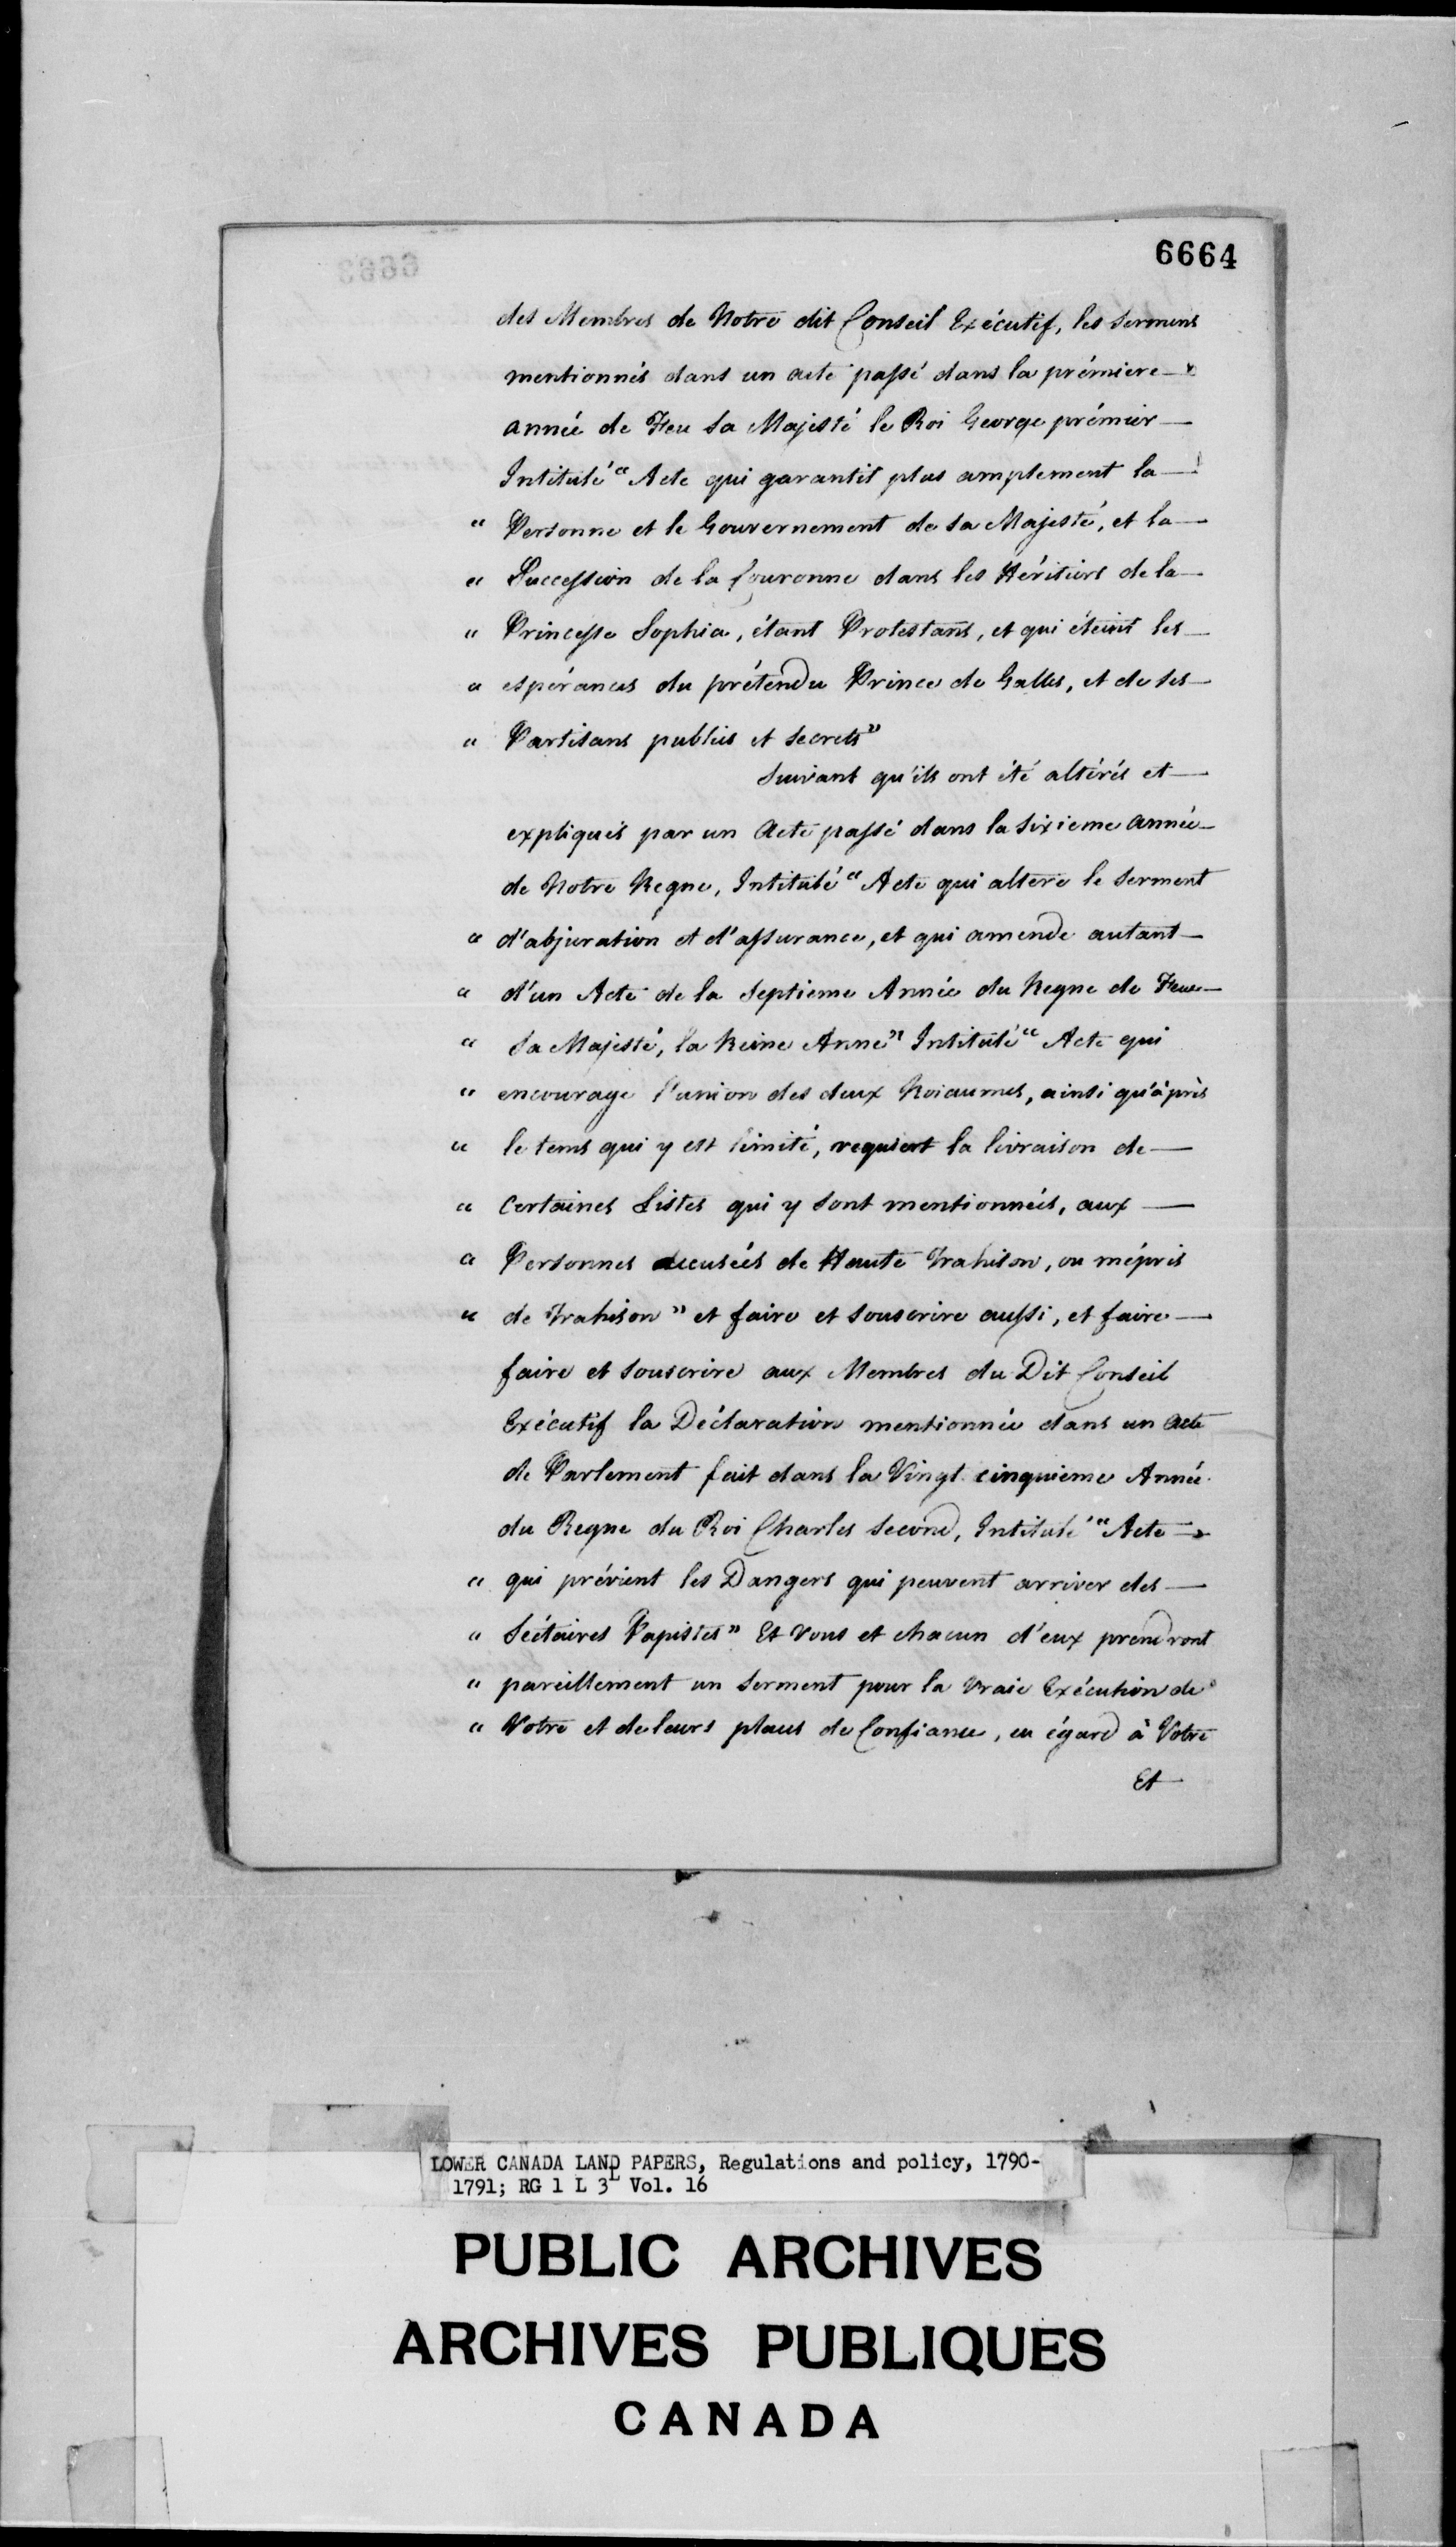 6664
des Membres de Notre dit Conseil Exécutif, les sermens
mentionnés dans un acte passé dans la prémiere
année de Feu sa Majesté le Roi George prémier —
Intitulé “ Acte qui garantit plus amplement la —
“ Personne et le Gouvernement de sa Majesté, et la —
“ Succession de la Couronne dans les Héritiers de la —
“ Princesse Sophia, étant Protestans, et qui éteint les —
“ espérances du prétendu Prince de Galles, et de ses —
“ Partisans publics et secrets”
suivant qu'ils ont été altérés et —
expliqués par un Acte passé dans la sixieme année —
de Notre Regne, Intitulé “ Acte qui altere le serment
“ d'abjuration et d'assurance, et qui amende autant —
“ d'un Acte de la septieme Année du Regne de Feue —
“ sa Majesté, la Reine Anne” Intitulé “ Acte qui
“ encourage l'union des deux Roiaumes, ainsi qu'àprès
“ le tems qui y est limité, requiert la livraison de —
“ certaines Listes qui y sont mentionnées, aux —
“ Personnes accusées de Haute Trahison, ou mépris
“ de Trahison” et faire et souscrire aussi, et faire —
faire et souscrire aux Membres du Dit Conseil
Exécutif la Déclaration mentionnée dans un Acte
de Parlement fait dans la Vingt cinquieme Année
du Regne du Roi Charles Second, Intitulé “ Acte —
“ qui prévient les Dangers qui peuvent arriver des —
“ Séctaires Papistes” Et vous et chacun d'eux prendront
“ pareillement un serment pour la vraie Exécution de
“ Votre et de leurs places de Confiance, eu égard à Votre
Et —
LOWER CANADA LAND PAPERS, Regulations and policy, 1790-
1791; RG 1 L 3L Vol. 16
PUBLIC ARCHIVES
ARCHIVES PUBLIQUES
CANADA